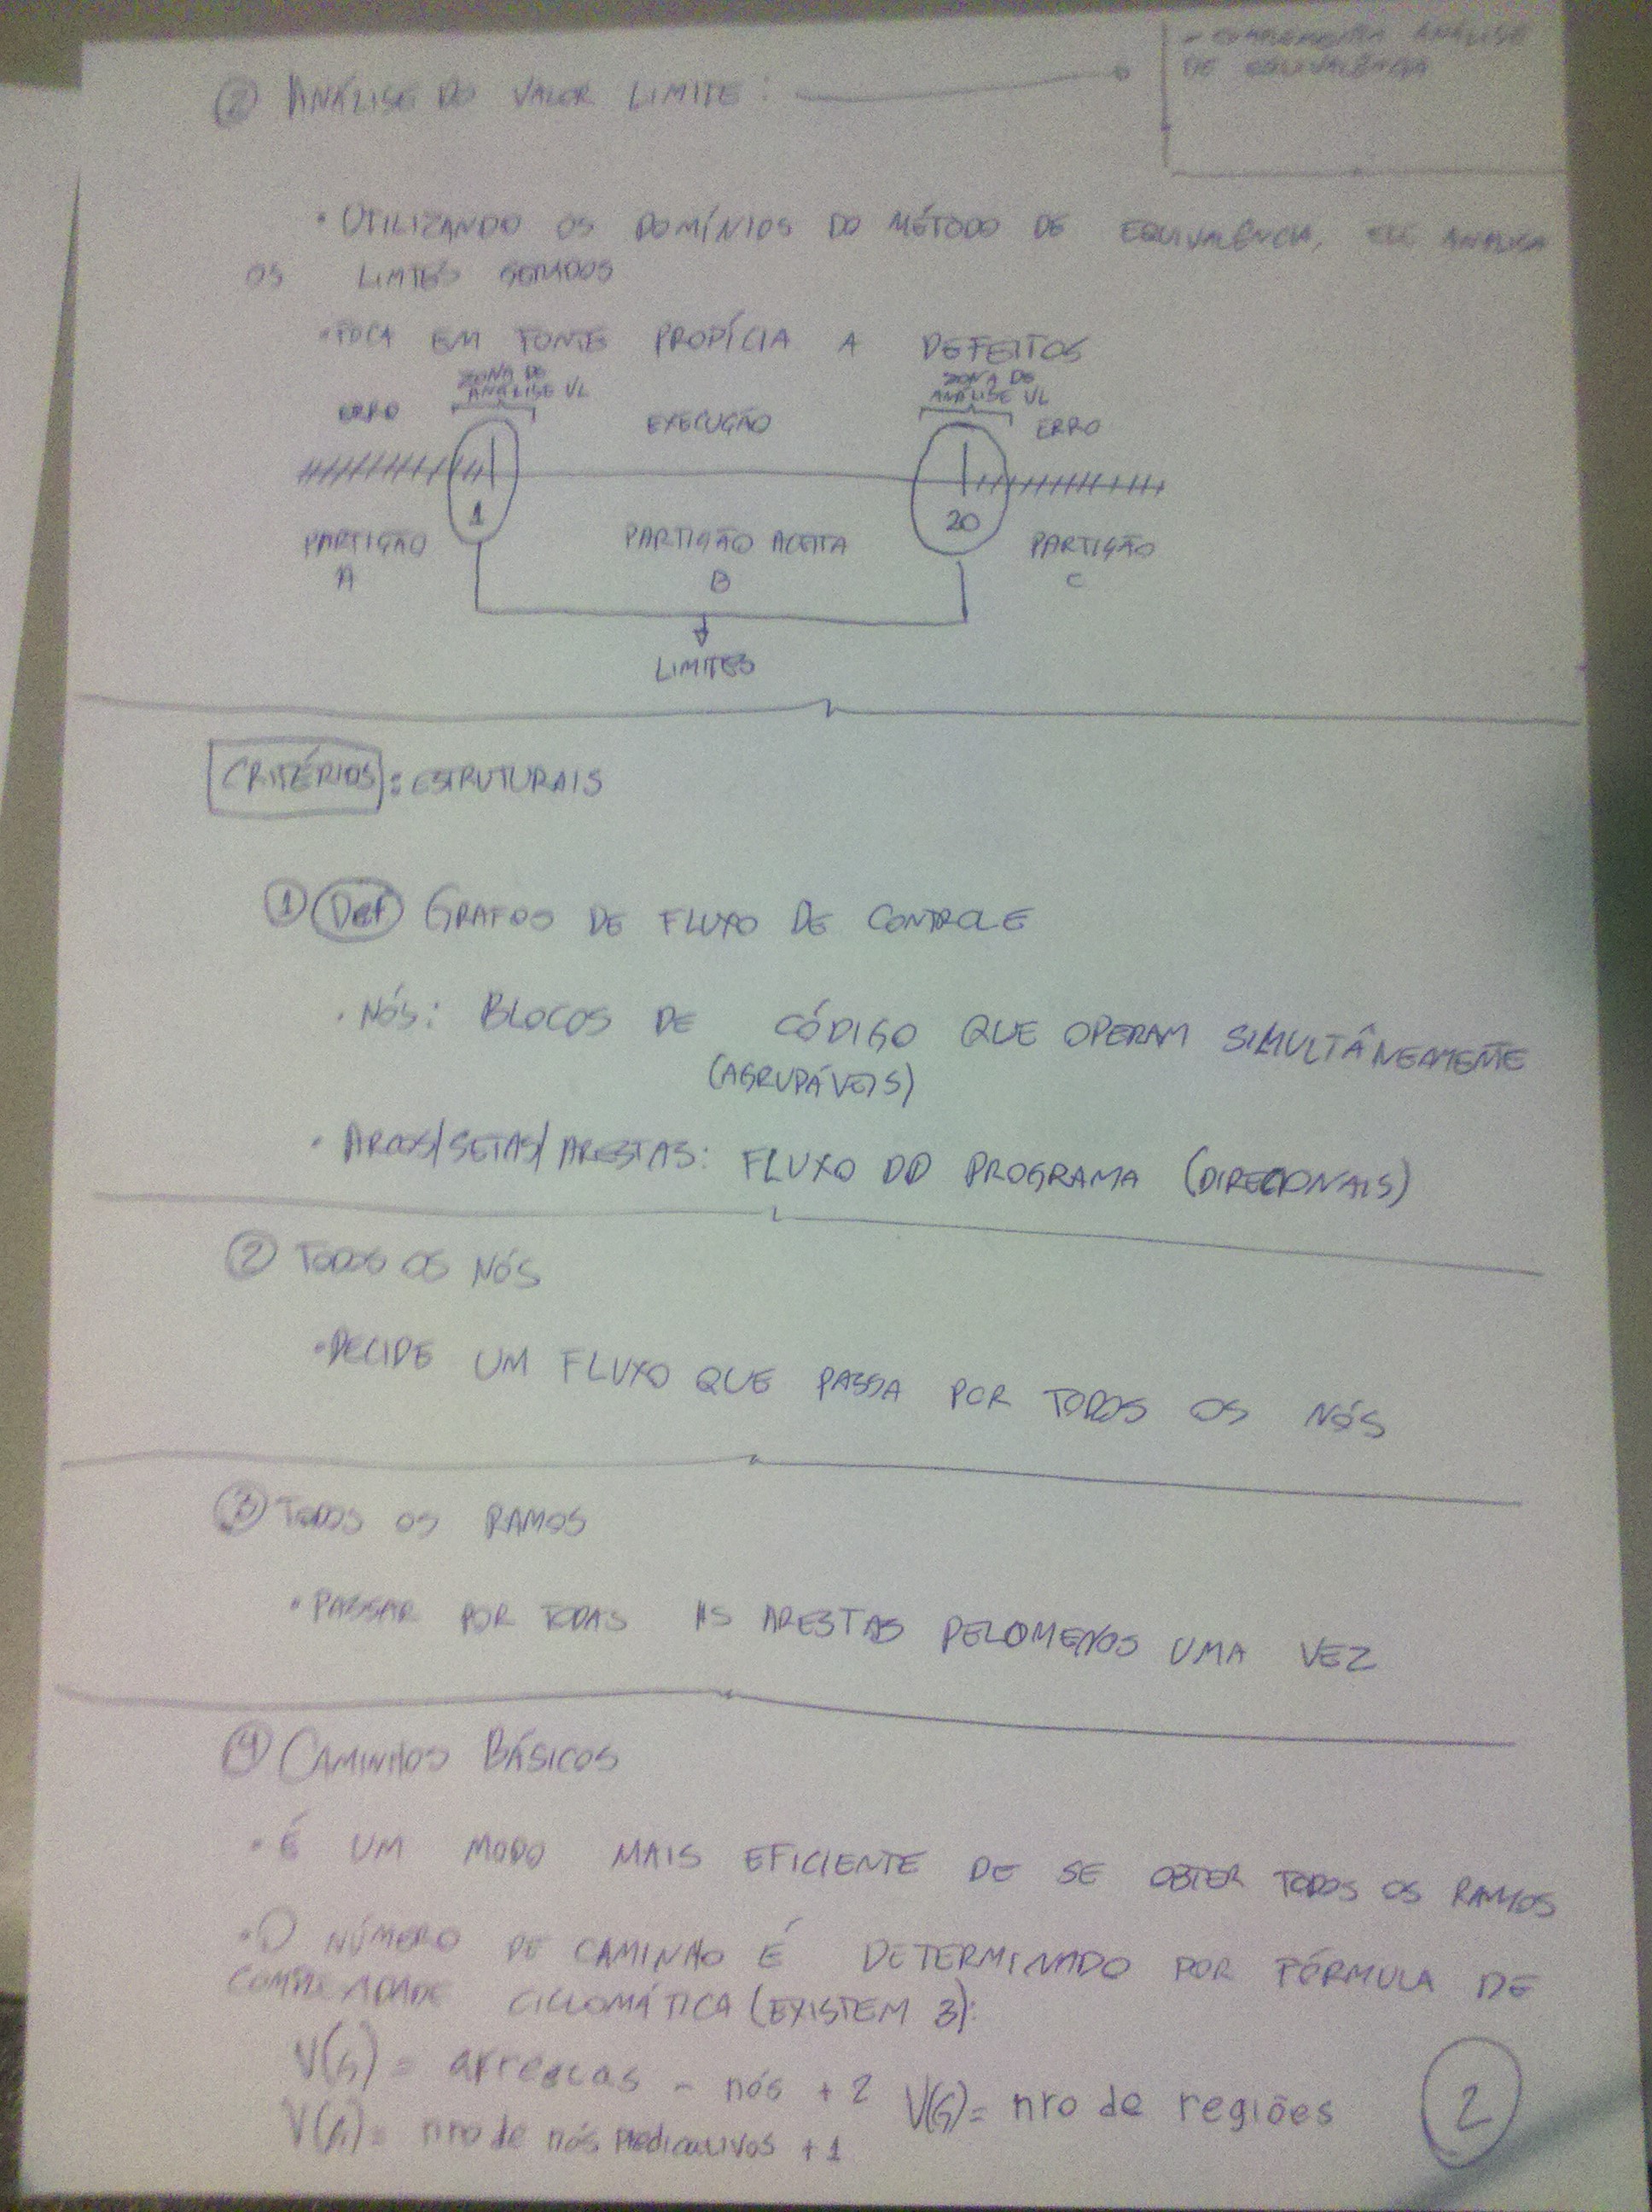 ② ANÁLISE DO VALOR LIMITE:
- COMPLEMENTA ANÁLISE
DE EQUIVALÊNCIA
• UTILIZANDO OS DOMÍNIOS DO MÉTODO DE EQUIVALÊNCIA, ELE ANALISA
OS LIMITES GERADOS
• FOCA EM FONTE PROPÍCIA A DEFEITOS
ERRO
ZONA DE
ANÁLISE VL
EXECUÇÃO
ZONA DE
ANÁLISE VL
ERRO
1
20
PARTIÇÃO
A
PARTIÇÃO ACEITA
B
PARTIÇÃO
C
LIMITES
CRITÉRIOS: ESTRUTURAIS
① Def GRAFOS DE FLUXO DE CONTROLE
• NÓS: BLOCOS DE CÓDIGO QUE OPERAM SIMULTÂNEAMENTE
(AGRUPÁVEIS)
• ARCOS/SETAS/ARESTAS: FLUXO DO PROGRAMA (DIRECIONAIS)
② TODOS OS NÓS
• DECIDE UM FLUXO QUE PASSA POR TODOS OS NÓS
③ TODOS OS RAMOS
• PASSAR POR TODAS AS ARESTAS PELOMENOS UMA VEZ
④ CAMINHOS BÁSICOS
• É UM MODO MAIS EFICIENTE DE SE OBTER TODOS OS RAMOS
• O NÚMERO DE CAMINHO É DETERMINADO POR FÓRMULA DE
COMPLEXIDADE CICLOMÁTICA (EXISTEM 3):
V(G) = arrestas - nós + 2 V(G) = nro de regiões
V(G) = nro de nós predicativos + 1
2